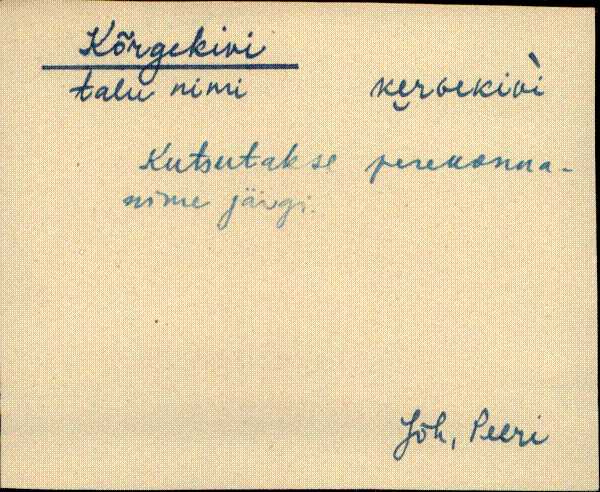 Kõrgekivi
talu nimi kẹrɢekivì
Kutsutakse perekonna-
nime järgi.
Jõh, Peeri